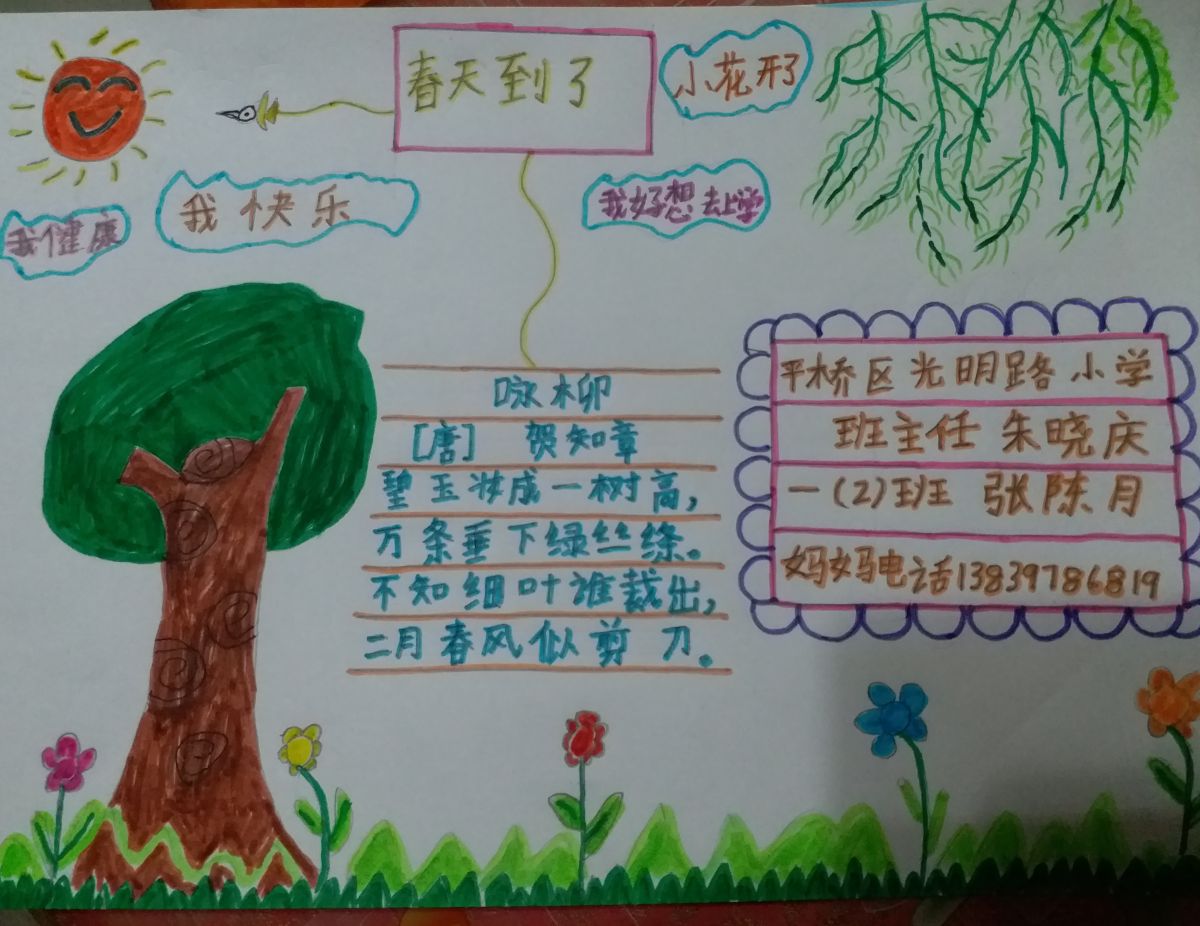 春天到了
小花开了
我快乐
我好想去上学
我健康
咏柳
[唐] 贺知章
碧玉妆成一树高，
万条垂下绿丝绦。
不知细叶谁裁出，
二月春风似剪刀。
平桥区光明路小学
班主任 朱晓庆
一(2)班 张陈月
妈妈电话13839786819